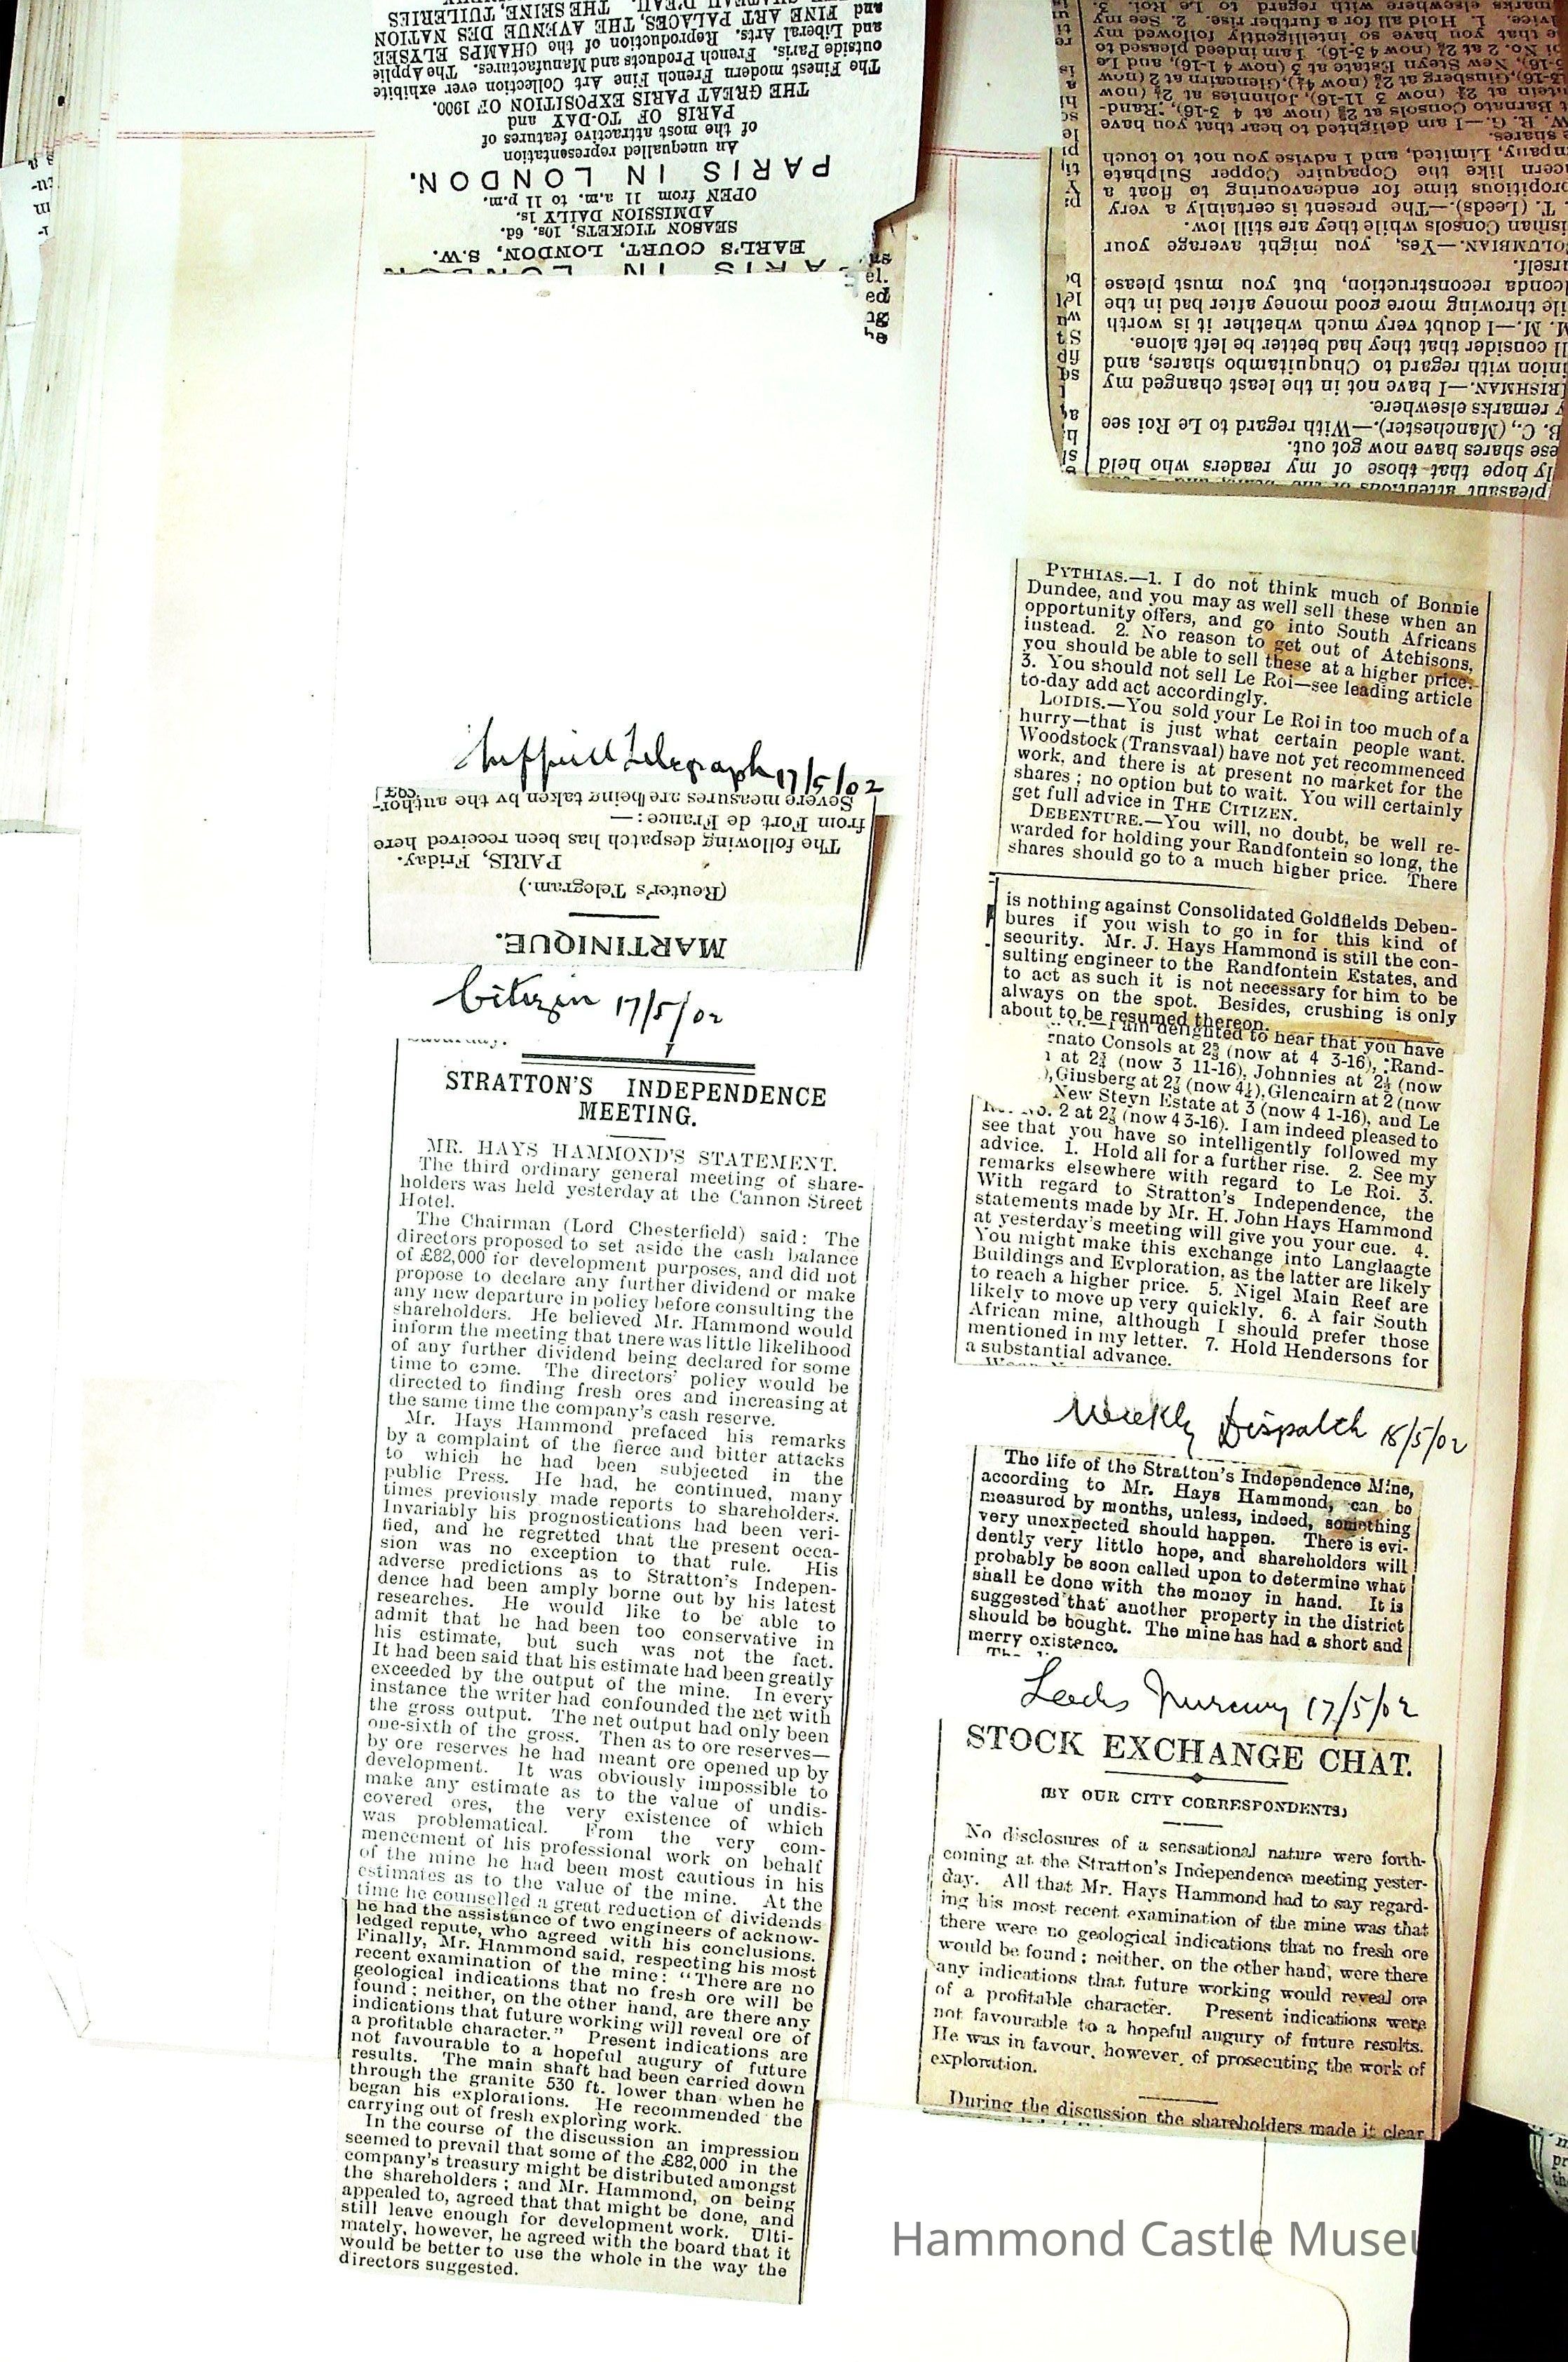 Sheffield Telegraph 17/5/02
Severe measures are being taken by the author-
from Fort de France:—
The following despatch has been received here
PARIS, Friday.
(Reuter's Telegram.)
MARTINIQUE.
Citizen 17/5/02
STRATTON'S INDEPENDENCE
MEETING.
MR. HAYS HAMMOND'S STATEMENT.
The third ordinary general meeting of share-
holders was held yesterday at the Cannon Street
Hotel.
The Chairman (Lord Chesterfield) said: The
directors proposed to set aside the cash balance
of £82,000 for development purposes, and did not
propose to declare any further dividend or make
any new departure in policy before consulting the
shareholders. He believed Mr. Hammond would
inform the meeting that there was little likelihood
of any further dividend being declared for some
time to come. The directors' policy would be
directed to finding fresh ores and increasing at
the same time the company's cash reserve.
Mr. Hays Hammond prefaced his remarks
by a complaint of the fierce and bitter attacks
to which he had been subjected in the
public Press. He had, he continued, many
times previously made reports to shareholders.
Invariably his prognostications had been veri-
fied, and he regretted that the present occa-
sion was no exception to that rule. His
adverse predictions as to Stratton's Indepen-
dence had been amply borne out by his latest
researches. He would like to be able to
admit that he had been too conservative in
his estimate, but such was not the fact.
It had been said that his estimate had been greatly
exceeded by the output of the mine. In every
instance the writer had confounded the net with
the gross output. The net output had only been
one-sixth of the gross. Then as to ore reserves—
by ore reserves he had meant ore opened up by
development. It was obviously impossible to
make any estimate as to the value of undis-
covered ores, the very existence of which
was problematical. From the very com-
mencement of his professional work on behalf
of the mine he had been most cautious in his
estimates as to the value of the mine. At the
time he counselled a great reduction of dividends
he had the assistance of two engineers of acknow-
ledged repute, who agreed with his conclusions.
Finally, Mr. Hammond said, respecting his most
recent examination of the mine: "There are no
geological indications that no fresh ore will be
found; neither, on the other hand, are there any
indications that future working will reveal ore of
a profitable character." Present indications are
not favourable to a hopeful augury of future
results. The main shaft had been carried down
through the granite 530 ft. lower than when he
began his explorations. He recommended the
carrying out of fresh exploring work.
In the course of the discussion an impression
seemed to prevail that some of the £82,000 in the
company's treasury might be distributed amongst
the shareholders; and Mr. Hammond, on being
appealed to, agreed that that might be done, and
still leave enough for development work. Ulti-
mately, however, he agreed with the board that it
would be better to use the whole in the way the
directors suggested.
EARL'S COURT, LONDON, S.W.
SEASON TICKETS, 10s. 6d.
ADMISSION DAILY 1s.
OPEN from 11 a.m. to 11 p.m.
PARIS IN LONDON.
An unequalled representation
of the most attractive features of
PARIS OF TO-DAY and
THE GREAT PARIS EXPOSITION OF 1900.
The Finest modern French Fine Art Collection ever exhibite
outside Paris. French Products and Manufactures. The Applie
and Liberal Arts. Reproduction of the CHAMPS ELYSEE
and FINE ART PALACES, THE AVENUE DES NATION
THE SEINE, TUILERIES
pleasant attentions of
ly hope that those of my readers who held
ese shares have now got out.
B. C., (Manchester).—With regard to Le Roi see
y remarks elsewhere.
IRISHMAN.—I have not in the least changed my
inion with regard to Chuquitambo shares, and
ll consider that they had better be left alone.
M. M.—I doubt very much whether it is worth
ile throwing more good money after bad in the
lconda reconstruction, but you must please
urself.
OLUMBIAN.—Yes, you might average your
isman Consols while they are still low.
T. (Leeds).—The present is certainly a very
opitious time for endeavouring to float a
cern like the Copaquire Copper Sulphate
mpany, Limited, and I advise you not to touch
e shares.
W. R. G.—I am delighted to hear that you have
t Barnato Consols at 2⅜ (now at 4 3-16), Rand-
ntein at 2¾ (now 3 11-16), Johnnies at 2½ (now
3-16), Ginsberg at 2⅞ (now 4½), Glencairn at 2 (now
-16), New Steyn Estate at 3 (now 4 1-16), and Le
oi No. 2 at 2⅞ (now 4 3-16). I am indeed pleased to
e that you have so intelligently followed my
dvice. 1. Hold all for a further rise. 2. See my
marks elsewhere with regard to Le Roi. 3.
PYTHIAS.—1. I do not think much of Bonnie
Dundee, and you may as well sell these when an
opportunity offers, and go into South Africans
instead. 2. No reason to get out of Atchisons,
you should be able to sell these at a higher price.
3. You should not sell Le Roi—see leading article
to-day add act accordingly.
LOIDIS.—You sold your Le Roi in too much of a
hurry—that is just what certain people want.
Woodstock (Transvaal) have not yet recommenced
work, and there is at present no market for the
shares; no option but to wait. You will certainly
get full advice in THE CITIZEN.
DEBENTURE.—You will, no doubt, be well re-
warded for holding your Randfontein so long, the
shares should go to a much higher price. There
is nothing against Consolidated Goldfields Deben-
bures if you wish to go in for this kind of
security. Mr. J. Hays Hammond is still the con-
sulting engineer to the Randfontein Estates, and
to act as such it is not necessary for him to be
always on the spot. Besides, crushing is only
about to be resumed thereon.
—I am delighted to hear that you have
rnato Consols at 2⅜ (now at 4 3-16), Rand-
at 2¾ (now 3 11-16), Johnnies at 2½ (now
), Ginsberg at 2⅞ (now 4½), Glencairn at 2 (now
New Steyn Estate at 3 (now 4 1-16), and Le
2 at 2⅞ (now 4 3-16). I am indeed pleased to
see that you have so intelligently followed my
advice. 1. Hold all for a further rise. 2. See my
remarks elsewhere with regard to Le Roi. 3.
With regard to Stratton's Independence, the
statements made by Mr. H. John Hays Hammond
at yesterday's meeting will give you your cue. 4.
You might make this exchange into Langlaagte
Buildings and Evploration, as the latter are likely
to reach a higher price. 5. Nigel Main Reef are
likely to move up very quickly. 6. A fair South
African mine, although I should prefer those
mentioned in my letter. 7. Hold Hendersons for
a substantial advance.
Weekly Dispatch 18/5/02
The life of the Stratton's Independence Mine,
according to Mr. Hays Hammond, can be
measured by months, unless, indeed, something
very unexpected should happen. There is evi-
dently very little hope, and shareholders will
probably be soon called upon to determine what
shall be done with the money in hand. It is
suggested that another property in the district
should be bought. The mine has had a short and
merry existence.
Leeds Mercury 17/5/02
STOCK EXCHANGE CHAT.
(BY OUR CITY CORRESPONDENTS)
No disclosures of a sensational nature were forth-
coming at the Stratton's Independence meeting yester-
day. All that Mr. Hays Hammond had to say regard-
ing his most recent examination of the mine was that
there were no geological indications that no fresh ore
would be found; neither, on the other hand, were there
any indications that future working would reveal ore
of a profitable character. Present indications were
not favourable to a hopeful augury of future results.
He was in favour, however, of prosecuting the work of
exploration.
During the discussion the shareholders made it clear
Hammond Castle Museu